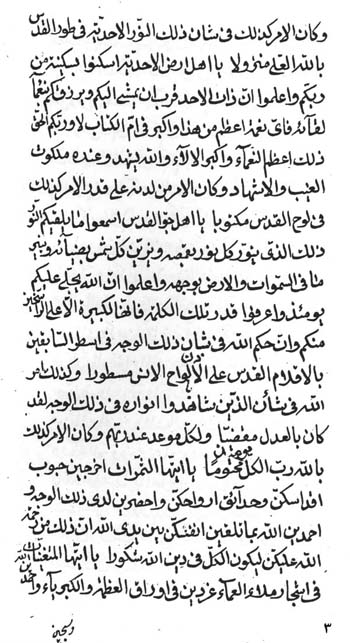 وكان الامر كذلك فى شان ذلك النور الاحدية فى طور القدس
بالله العلى منزولا يا اهل ارض الاحدية اسكنوا بسكينة من
ربكم واعلموا ان ذات الاحد قرب ان يمشى اليكم ويرزقكم نعماء
لقائه فاى نعمة اعظم من هذا واكبر فى ام الكتاب لا وربكم الحق
ذلك اعظم النعماء واكبر الالاء والله يشهد وعنده ملكوت
الغيب والاشهاد وكان الامر من لدنه على قدر الامر كذلك
فى لوح القدس مكتوبا يا اهل جو القدس اسمعوا ما يلقيكم النور
ذلك الذى ينور كل نور بقمصه ويزين كل شمس بضيائه وينير
من فى السموات والارض بوجهه واعلموا ان الله يتجلى عليكم
يومئذ واعرفوا قدر تلك الكلمة فانها لكبيرة الا على الراسخين
منكم وان حكم الله فى شان ذلك الوجه فى اسطر السابقين
بالاقلام القدس على الالواح الانس مسطورا وكذلك امر
الله فى شأن الذين شاهدوا انواره فى ذلك الوجه لقد
كان بالعدل مقضيا ولكل موعد عند ربهم وكان الامر كذلك
بالله رب الكل مختوما يا ايتها الثمرات اخرجين حبوب
افداسكن وحدائق ارواحكن واحضرين لدى ذلك الوجه و
احمدين الله بما تلقين انفسكن بين يدى الله ان ذلك من رحمة
الله عليكن ليكون الكل فى دين الله شكورا يا ايتها المغنيات
فى اشجار ملاء العماء غردين فى اوراق العظمة والكبرياء واحمدين الله
وسبحين
٣